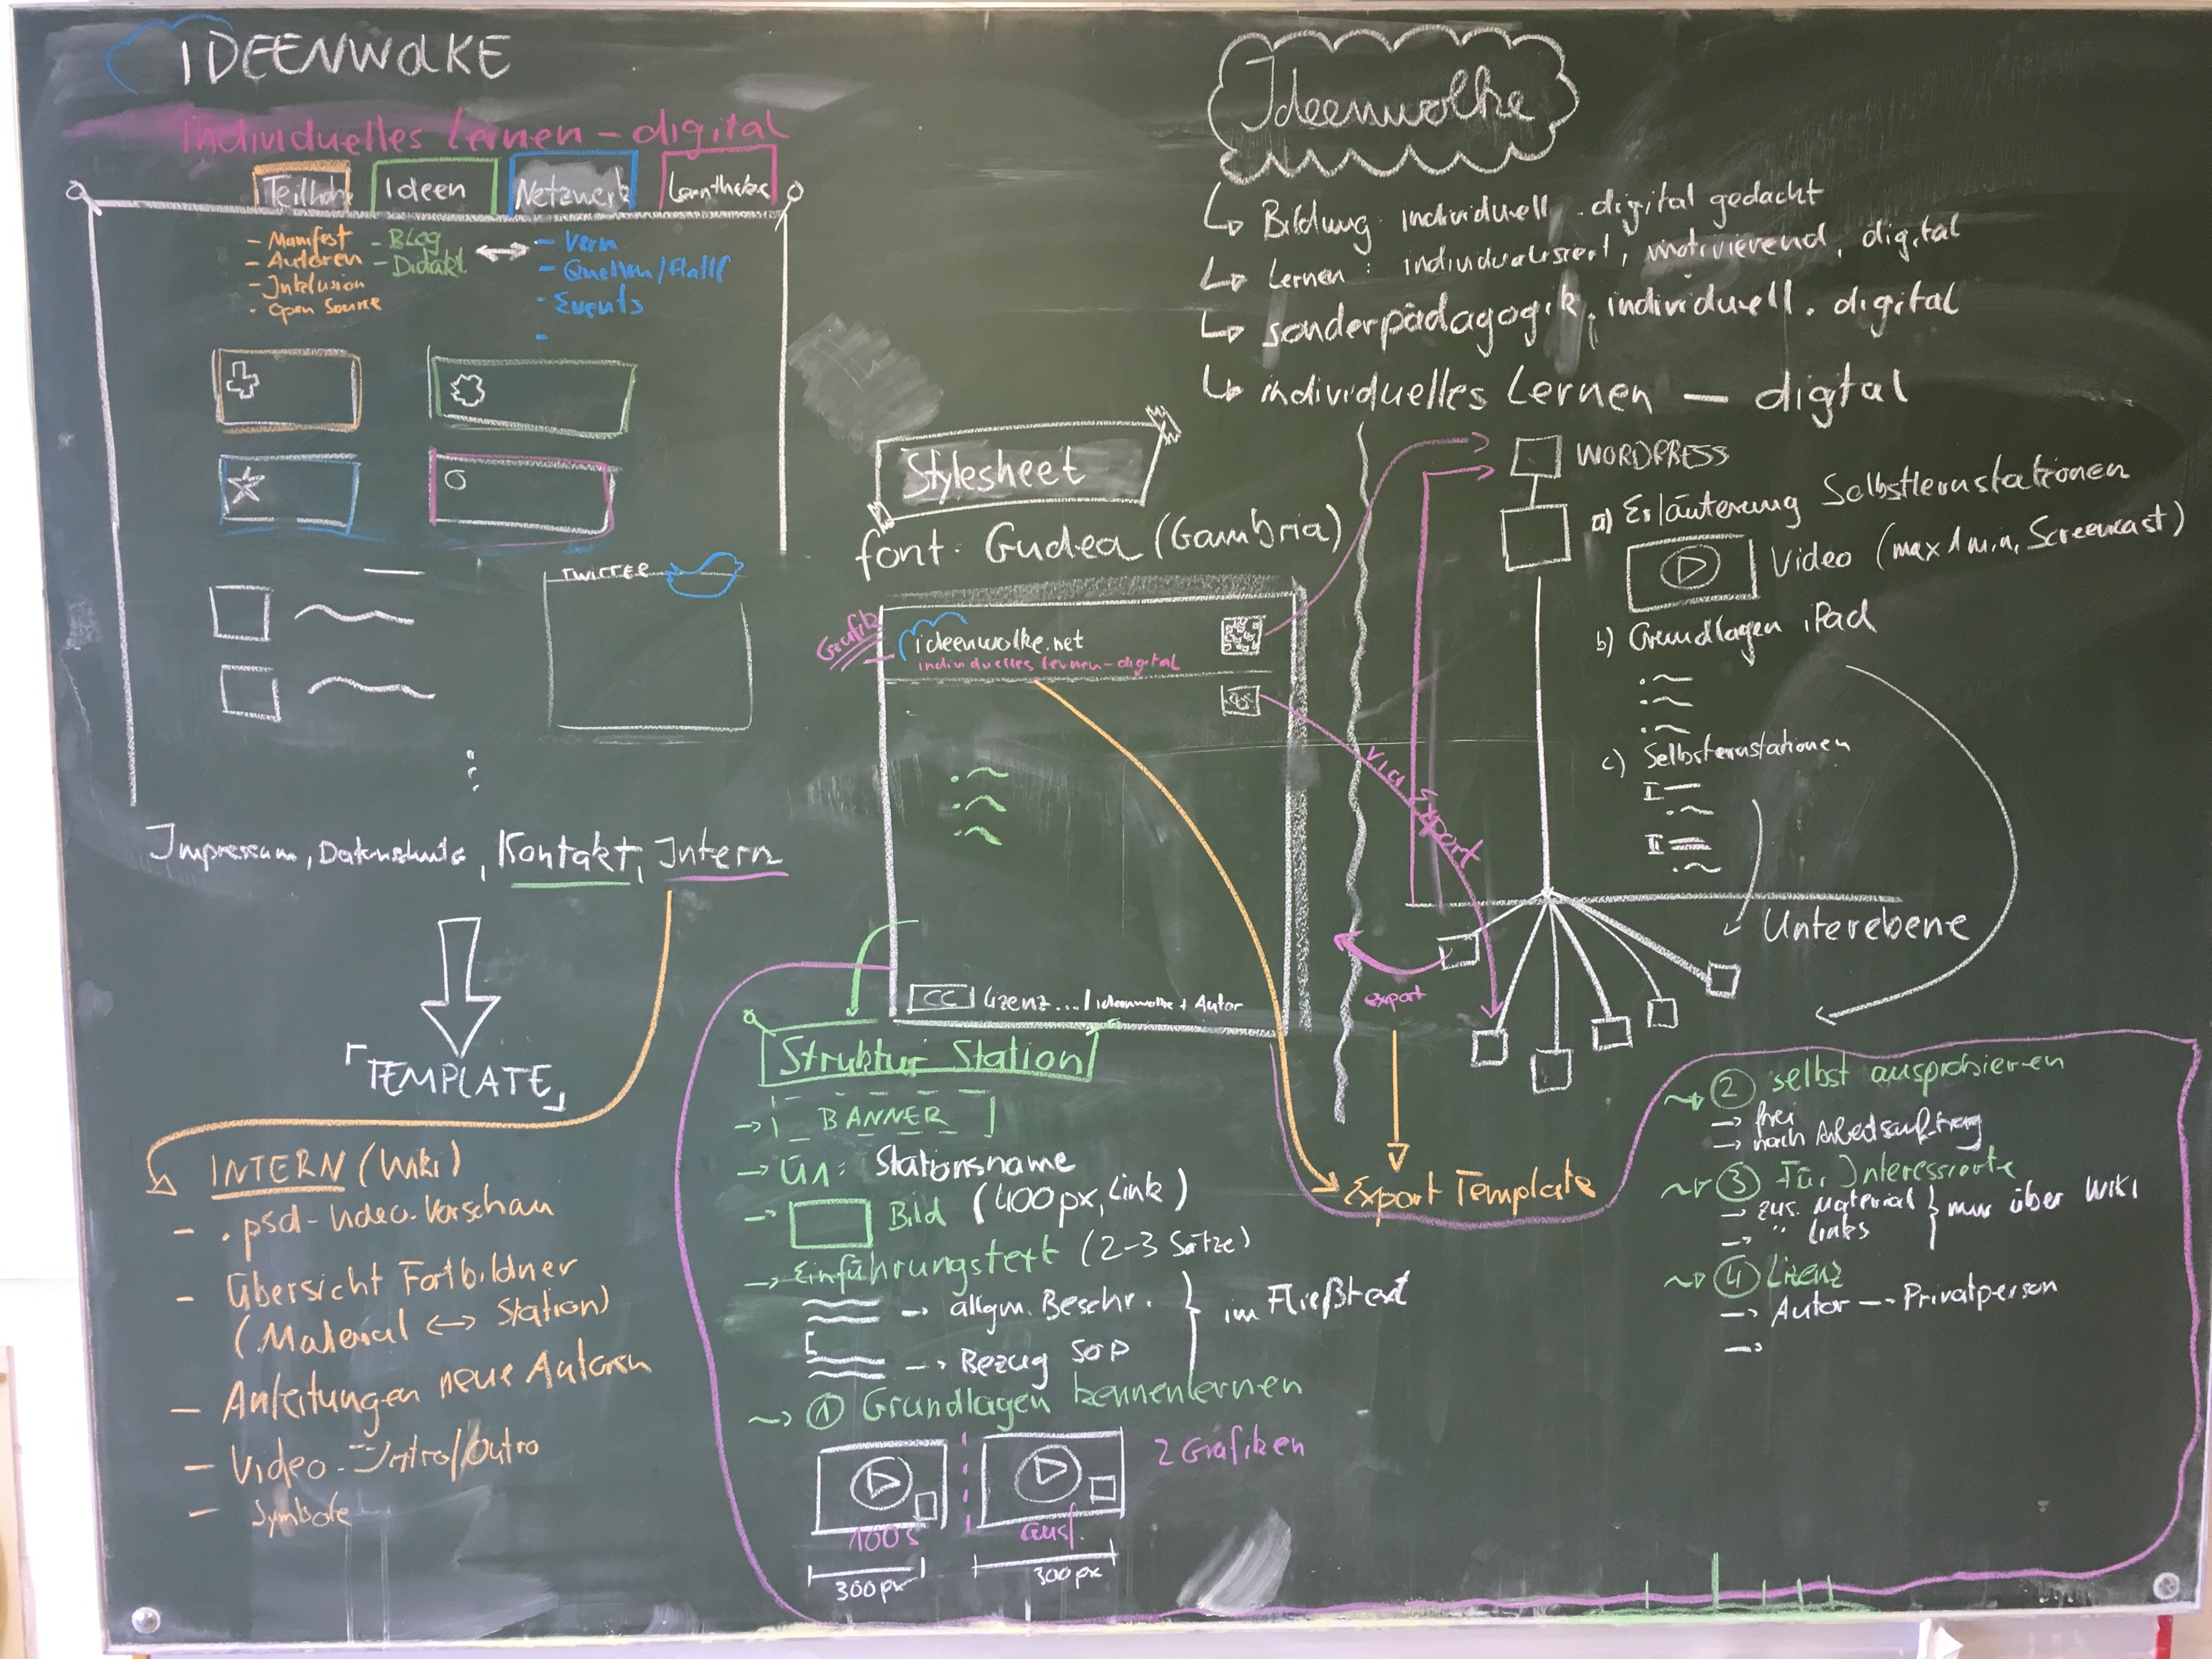 IDEENWOLKE
Individuelles Lernen – digital
Teilhabe Ideen Netzwerk Lerntheke
– Manifest
– Autoren
– Inklusion
- Open Source
– Blog
– Didakt.
–
– Quellen/
- Events
–
TWITTER
Impressum, Datenschutz, Kontakt, Intern
「TEMPLATE」
INTERN (Wiki)
– .psd-Video-Vorschau
– Übersicht Fortbildner
(Material ↔ Station)
– Anleitungen neue Autoren
– Video-Intro/Outro
– Symbole
Ideenwolke
↳ Bildung individuell . digital gedacht
↳ Lernen : individualisiert, motivierend, digital
↳ sonderpädagogik. individuell. digital
↳ individuelles Lernen — digital
Stylesheet
font: Gudea (Cambria)
Grafik
ideenwolke.net
individuelles lernen-digital
CC Lizenz .... / ideenwolke + Autor
via Export
export
Export Template
WORDPRESS
a) Erläuterung Selbstlernstationen
Video (max 1 min, Screencast)
b) Grundlagen iPad
c) Selbsternstationen
I
II
Unterebene
Struktur Station
→ BANNER
→ Ü1: Stationsname
→ Bild (400px, Link)
→ Einführungstext (2-3 Sätze)
→ allgm. Beschr.
→ Bezug SoP
} im Fließtext
① Grundlagen kennenlernen
2 Grafiken
100s ausf.
300px 300px
② selbst ausprobieren
→ frei
→ nach Arbeitsauftrag
③ Für Interessierte
→ zus. Material
→ " links
} nur über WIKI
④ Lizenz
→ Autor → Privatperson
→